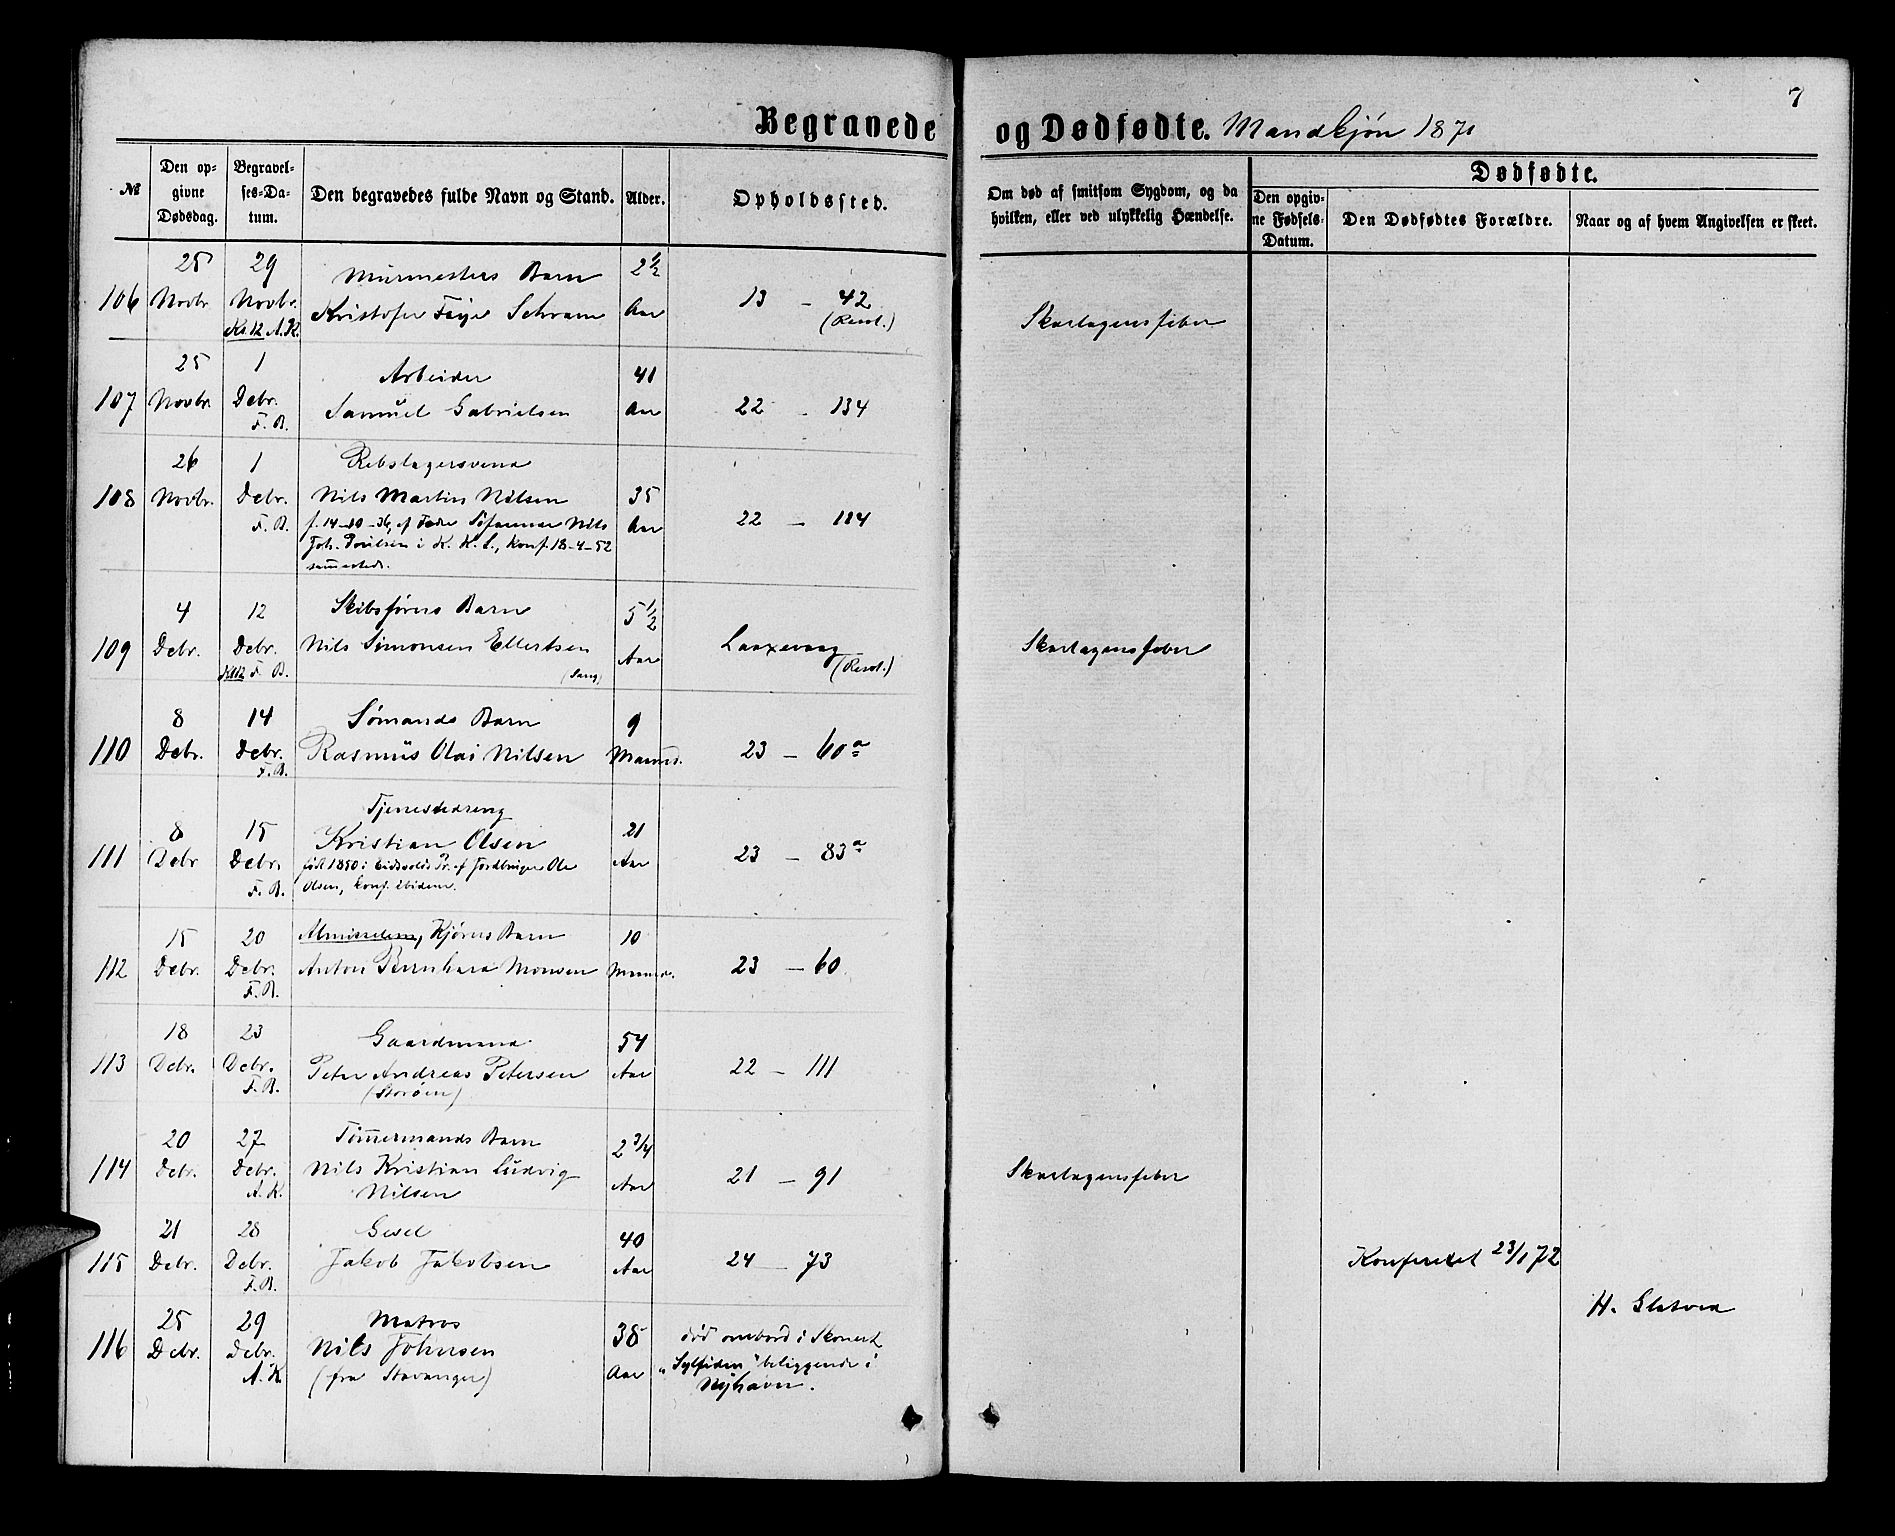 7
Begravede og Dødfødte. Mandkjøn 1871
№
Den opgivne Dødsdag.
Begravelses-Datum.
Den begravedes fulde Navn og Stand.
Alder.
Opholdssted.
Om død af smitsom Sygdom, og da hvilken, eller ved ulykkelig Hændelse.
Dødfødte.
Den opgivne Fødsels-Datum.
Den Dødfødtes Forældre.
Naar og af hvem Angivelsen er skeet.
25 29 Murmesters Barn 2 1/2
106 Novbr. Novbr. Kristofer Faye Schram Aar 13 - 42 Skarlagensfeber
A.K. (Resol.)
25 1 Arbeider 41
107 Novbr. Debr. Samuel Gabrielsen Aar 22 - 134
F. B.
26 1 Rebslagersvend
108 Novbr. Debr. Nils Martin Nilsen 35
F. B. f. 14-10-36, af Fader Nils Aar 22 - 114
Joh. i K. K. S., konf. 18-4-52
sammesteds.
4 12 Skibsførers Barn 5 1/2
109 Debr. Debr. Nils Simonsen Ellertsen Aar Laxevaag Skarlagensfeber
F. B. (Resol.)
8 14 Sømands Barn 9
110 Debr. Debr. Rasmus Olai Nilsen Maaned. 23 - 60a
F. B.
Tjenestedreng
8 15 Kristian Olsen 21
111 Debr Debr. født 1850 i Eidsvolds Pr. af Jordbruger Ole Aar 23 - 83a
F. B. Olsen, konf. ibidem.
15 20 Almisselem, Kjørers Barn 10
112 Debr. Debr. Anton Bernhard Monsen Maaned. 23 - 60
F. B.
18 23 Gaardmand 54
113 Debr. Debr. Peter Andreas Petersen Aar 22 - 111
F. B. (Storøen)
20 27 Tømermands Barn 2 3/4
114 Debr. Debr. Nils Kristian Ludvig Aar 21 - 91 Skarlagensfeber
A. K. Nilsen
21 28 Gesel 40
115 Debr. Debr. Jakob Jakobsen Aar 24 - 73 Konfereret 23/1 72
F. B.
H. Gletved
25 29 Matros 38 død ombord i Skonert
116 Debr. Debr. Nils Johnsen Aar "Sylfiden" beliggende i
A. K (fra Stavanger) Nyhavn.